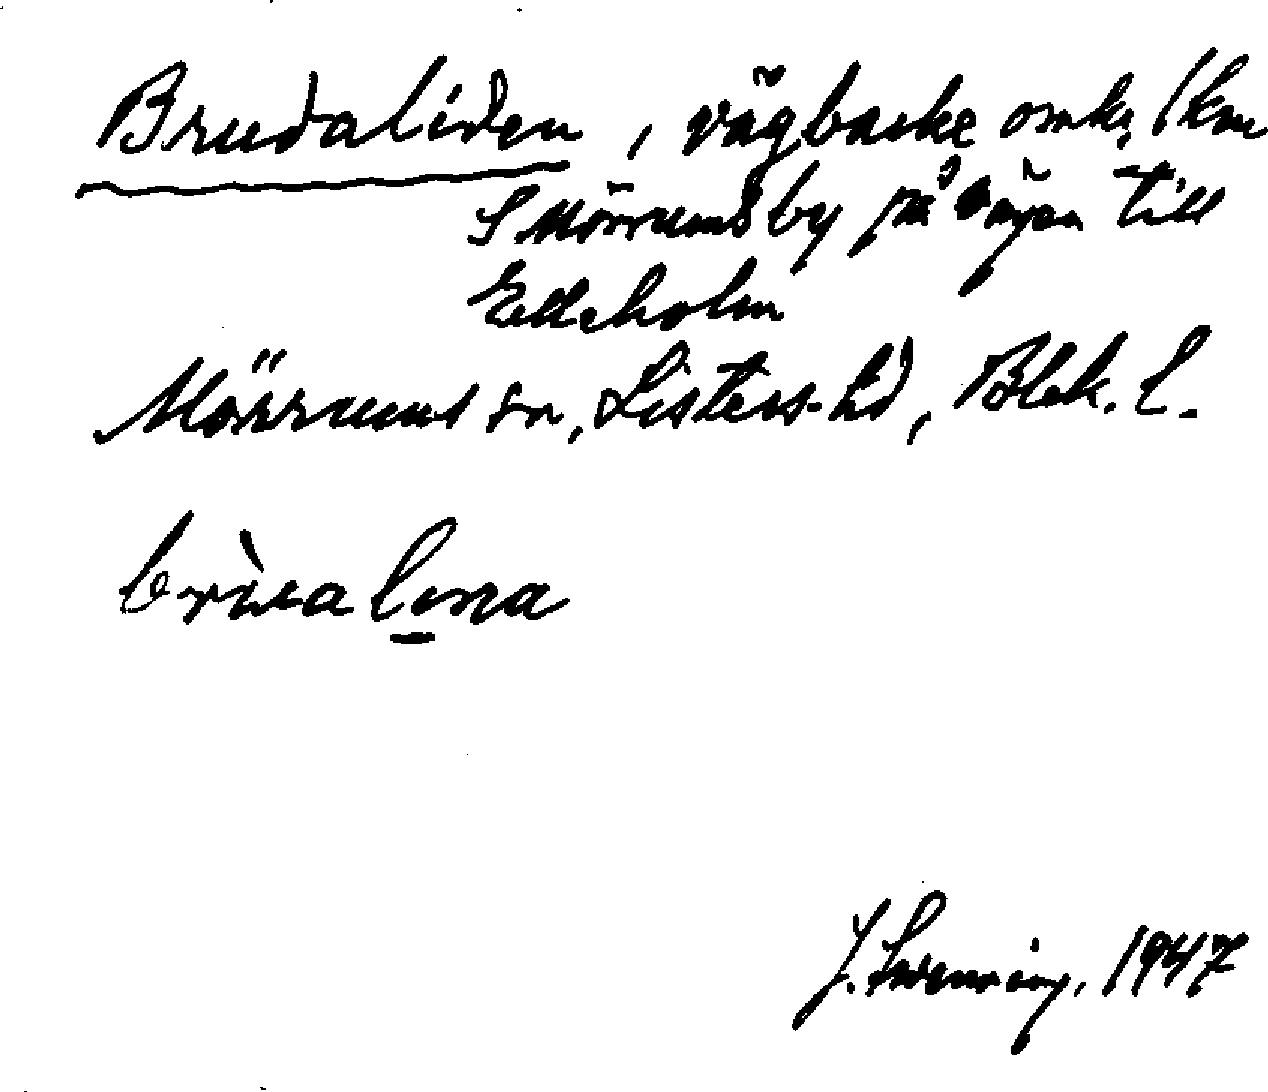 Brudaliden, vägbacke omkr. 1 km
S Mörrums by på vägen till
Elleholm
Mörrums sn, Listers hd, Blek. l.
J. Swenning, 1947